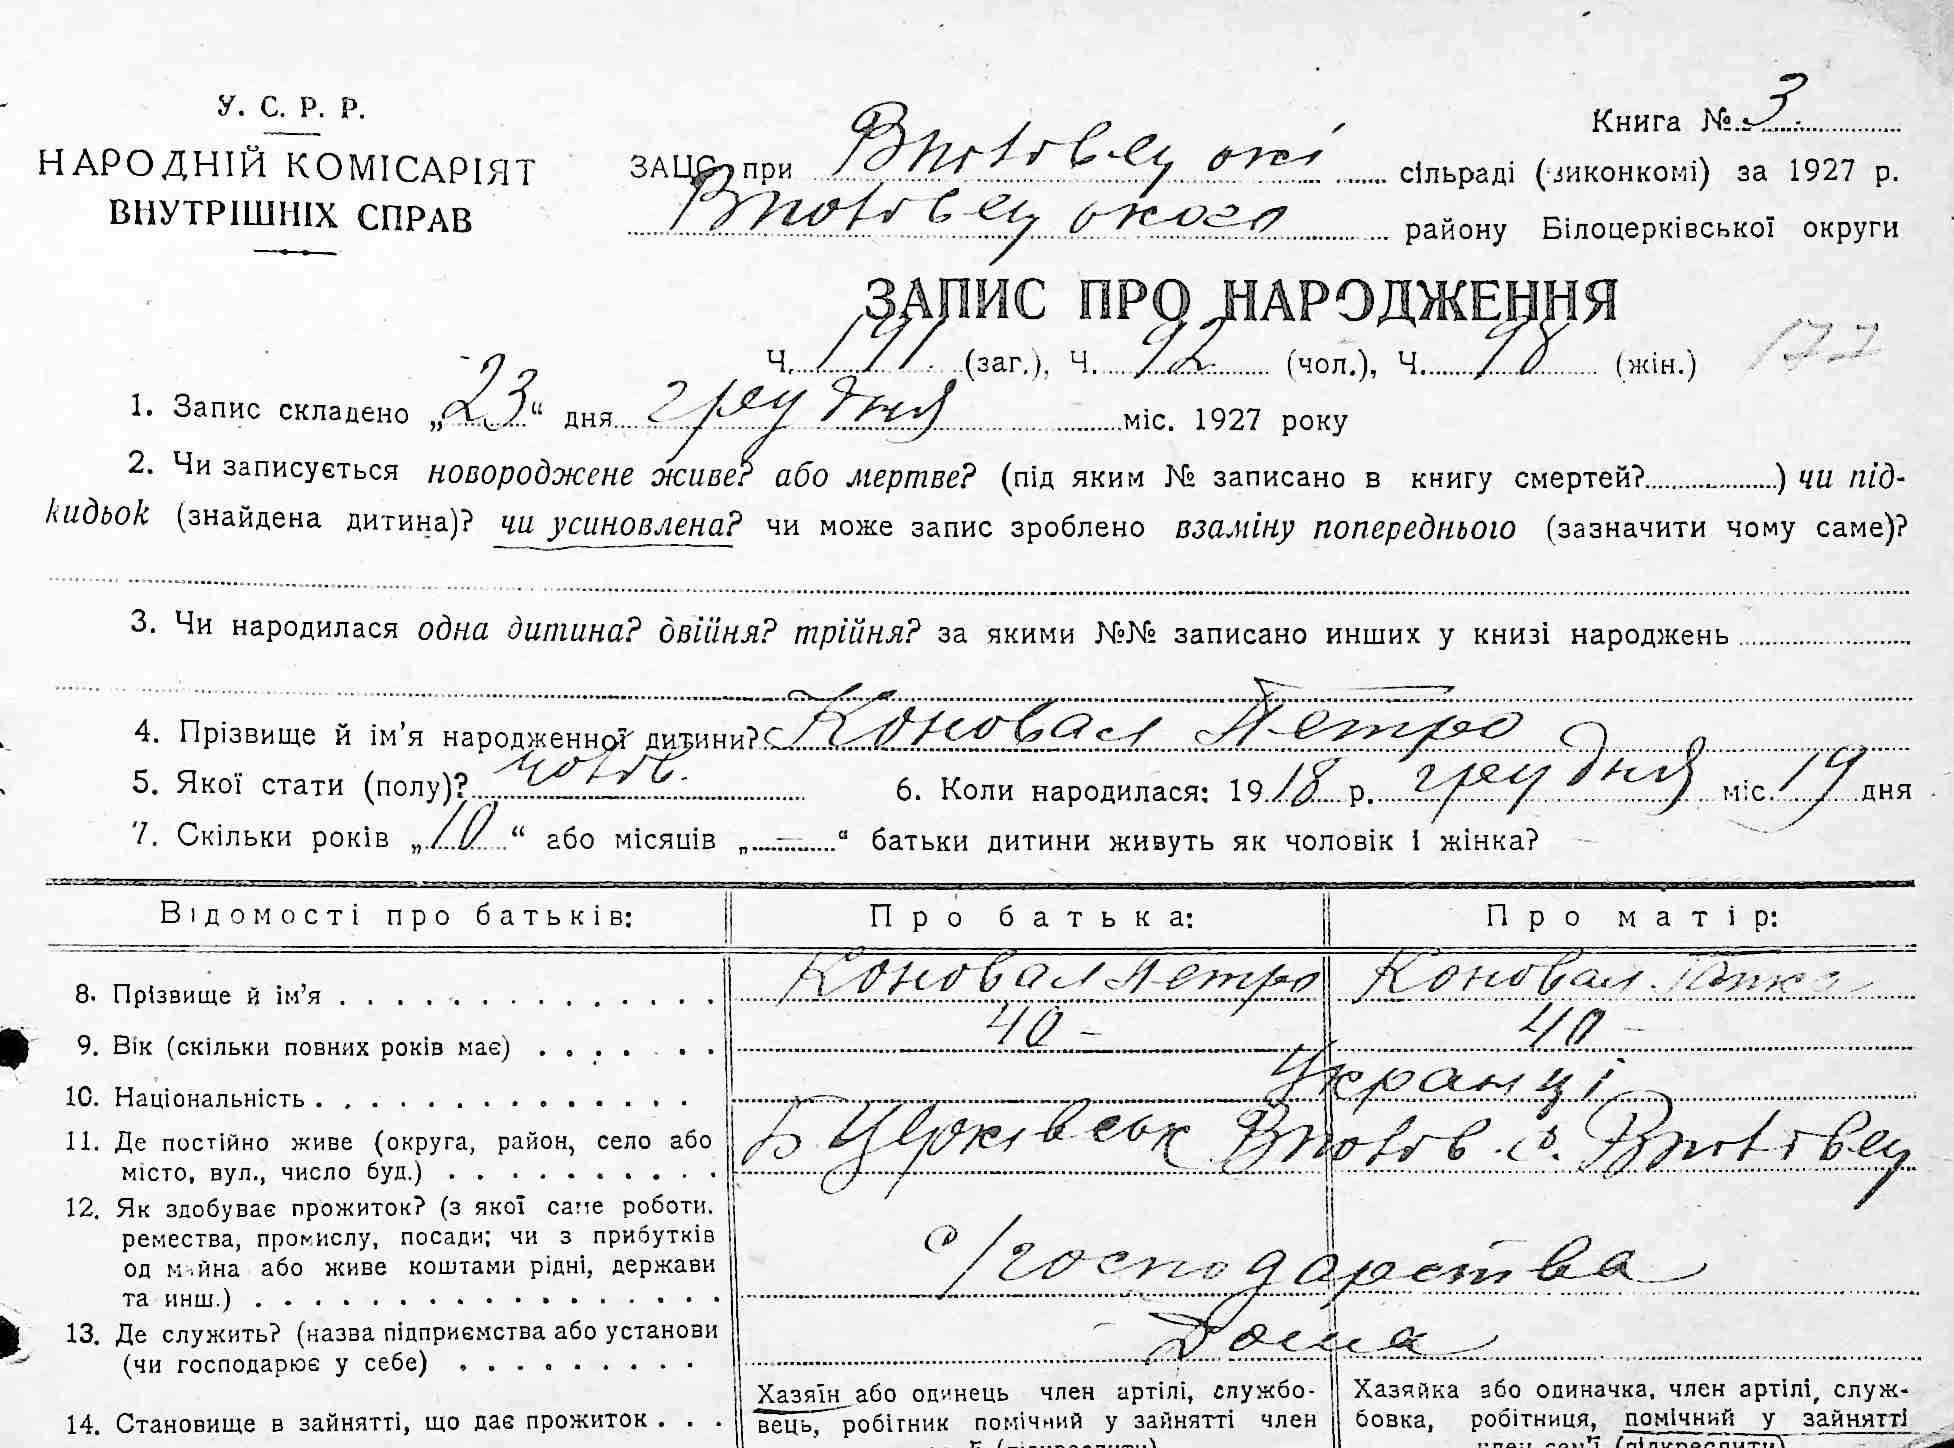 У. С. Р. Р.
НАРОДНІЙ КОМІСАРІЯТ
ВНУТРІШНІХ СПРАВ
Книга № 3
ЗАЦС при сільраді (виконкомі) за 1927 р.
району Білоцерківської округи
ЗАПИС ПРО НАРОДЖЕННЯ
Ч. 191 (заг.), Ч. 92 (чол.), Ч. 98 (жін.) 177
1. Запис складено „23“ дня грудня міс. 1927 року
2. Чи записується новороджене живе? або мертве? (під яким № записано в книгу смертей?) чи під-
кидьок (знайдена дитина)? чи усиновлена? чи може запис зроблено взаміну попереднього (зазначити чому саме)?
3. Чи народилася одна дитина? двійня? трійня? за якими №№ записано инших у книзі народжень
4. Прізвище й ім’я народженної дитини? Коновал Петро
5. Якої стати (полу)? чолов. 6. Коли народилася: 1918 р. грудня міс. 19 дня
7. Скільки років „10“ або місяців „—“ батьки дитини живуть як чоловік і жінка?
Відомості про батьків: Про батька: Про матір:
8. Прізвище й ім’я Коновал Петро Коновал
9. Вік (скільки повних років має) 40 – 40 –
10. Національність Укранці
11. Де постійно живе (округа, район, село або
місто, вул., число буд.) Б Церківськ
12. Як здобуває прожиток? (з якої саме роботи,
ремества, промислу, посади; чи з прибутків
од майна або живе коштами рідні, держави
та инш.) с/господарства
13. Де служить? (назва підприємства або установи
(чи господарює у себе) Дома
14. Становище в зайнятті, що дає прожиток
Хазяїн або одинець член артілі, службо-
вець, робітник помічний у зайнятті член
Хазяйка або одиначка, член артілі, служ-
бовка, робітниця, помічний у зайнятті